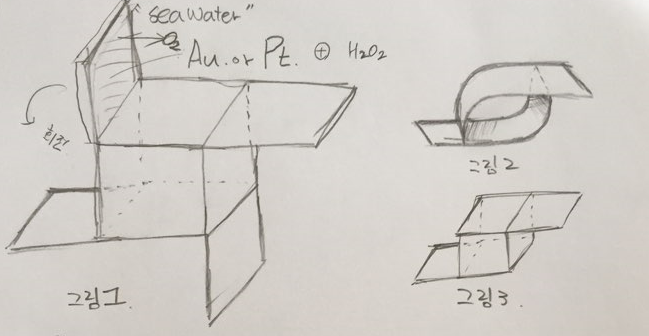 "seawater"
O₂
Au. or Pt. ⊕ H₂O₂
회전
그림 1.
그림 2
그림 3.